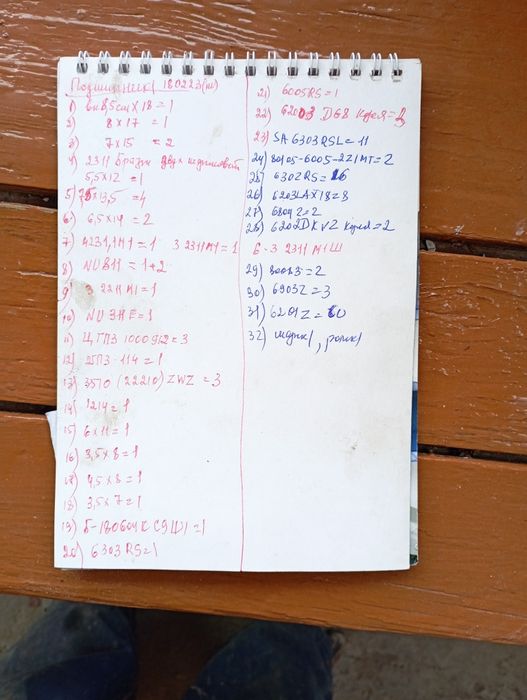 Подшипник 180223(ш)
1) 6к8,5см х 18 = 1
2) 8 х 17 = 1
3) 7 х 15 = 2
4) 2311 двух
5,5х12 = 1
5) 13,5 = 4
6) 6,5х14 = 2
7) 4231,1М1 = 1 3 2311М1 = 1
8) NU311 = 1+2
9) 3 2211 М1 = 1
10) NU = 1
11) ЦГПЗ = 3
12) 2ГПЗ-114 = 1
13) 3510 (22210) ZWZ = 3
14) 1214 = 1
15) 6 х 11 = 1
16) 3,5 х 8 = 1
4,5 х 8 = 1
18) 3,5 х 7 = 1
19) 6-180604К С9Ш1 = 1
20) 6303RS = 1
21) 6005RS = 1
22) 6203 DG8 = 3
23) SA 6303RSL = 11
24) 80105-6005-2Z1MT = 2
25) 6302RS = 16
26) 6203LAX18 = 8
27) 6804Z = 2
28) 6202DKVZ = 2
6-3 2311 М1Ш
29) = 2
30) 6903Z = 3
31) 6201Z = 10
32) шарики, ролики